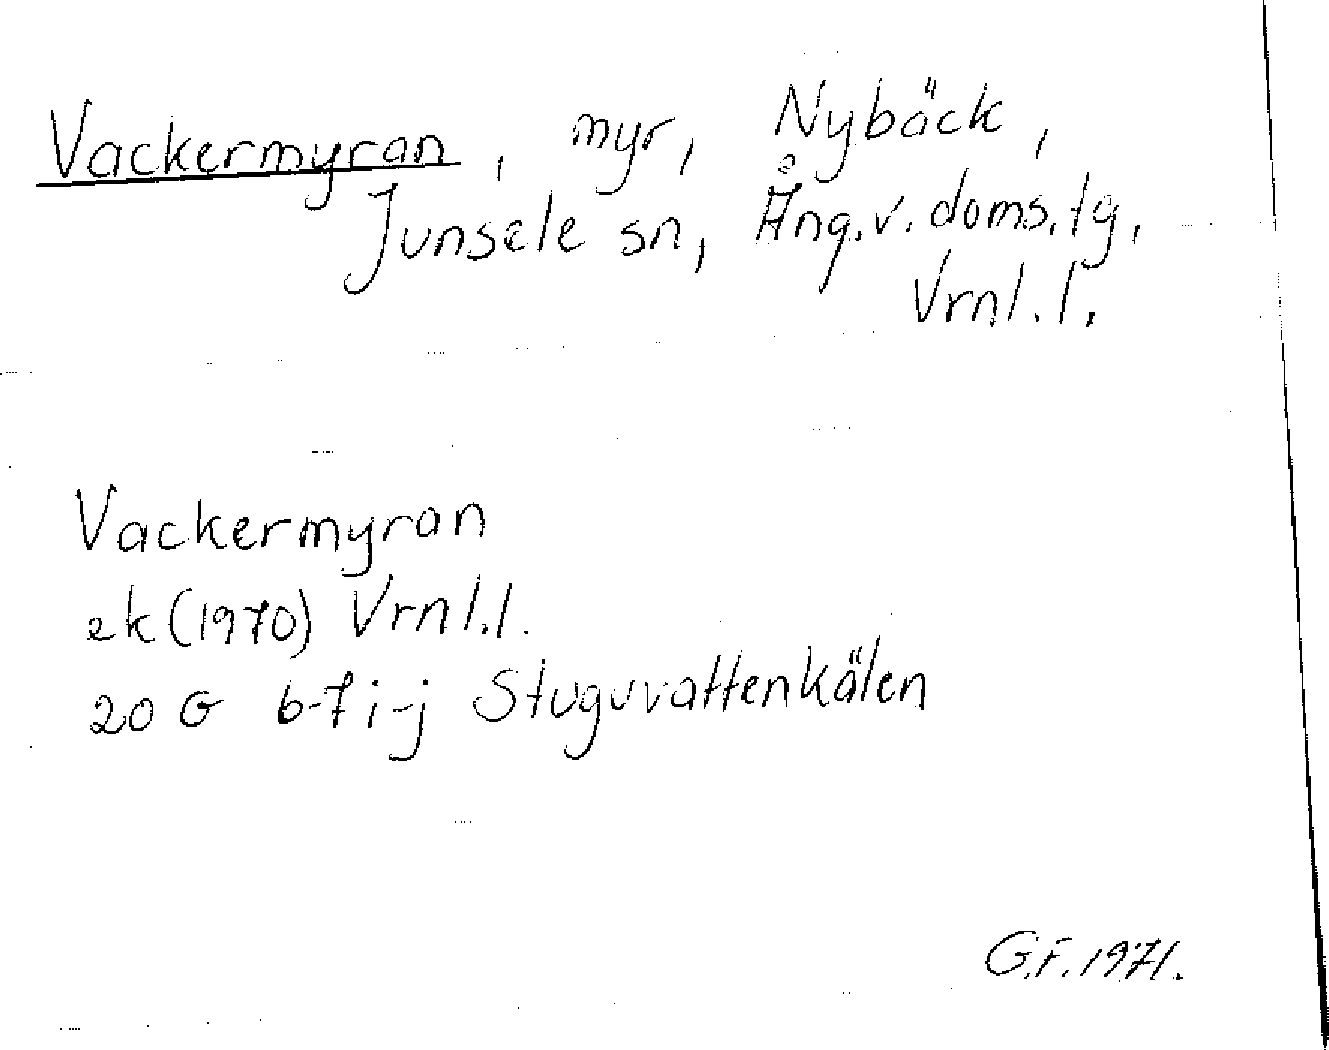 Vackermyran, myr, Nybäck,
Junsele sn, Ång.v.doms.tg,
Vrnl.l.
Vackermyran
ek (1970) Vrnl.l.
20 G 6-7 i-j Stuguvattenkälen
G.F. 1971.